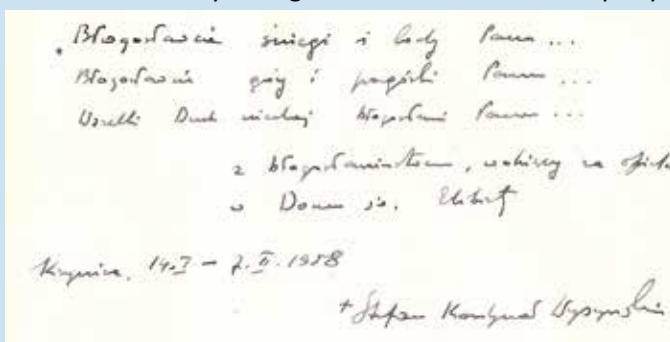 Błogosławcie śniegi i lody Panu...
Błogosławcie góry i pagórki Panu...
Wszelki Duch niechaj błogosławi Panu...
z błogosławieństwem, za
w Domu św. Elżbiety
Krynica, 14.I – 7.II.1958
+ Stefan Kardynał Wyszyński